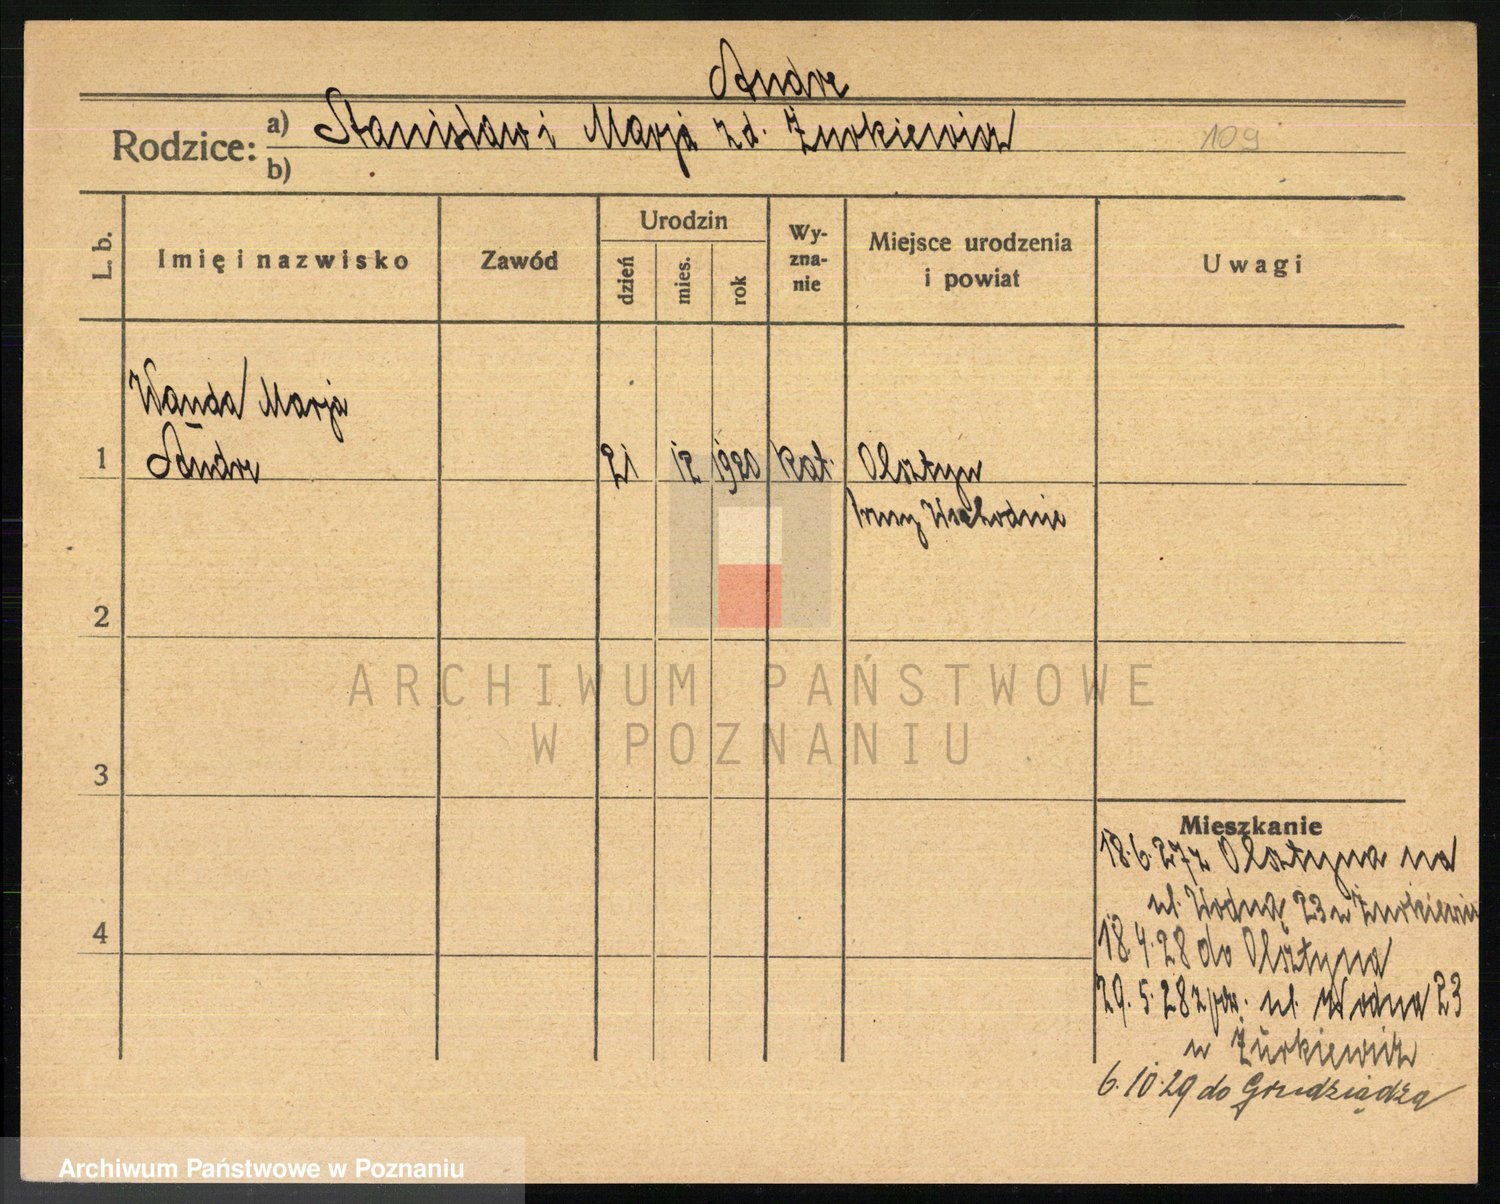 Andre
Rodzice: a) Stanisław i Marja zd. Żurkiewicz
109
b)
L. b.
Imię i nazwisko
Zawód
Urodzin
dzień
mies.
rok
Wy-
zna-
nie
Miejsce urodzenia
i powiat
Uwagi
Wanda Marja
1 Andre 21 12 1920 kat. Olsztyn
Prusy Wschodnie
2
ARCHIWUM PAŃSTWOWE
W POZNANIU
3
Mieszkanie
18.6.27 z Olsztyna na
ul. Wodną 23 u Żurkiewicz
4
18.4.28 do Olsztyna
29.5.28 z pow. ul. Wodna 23
u Żurkiewicz
6.10.29 do Grudziądza
Archiwum Państwowe w Poznaniu